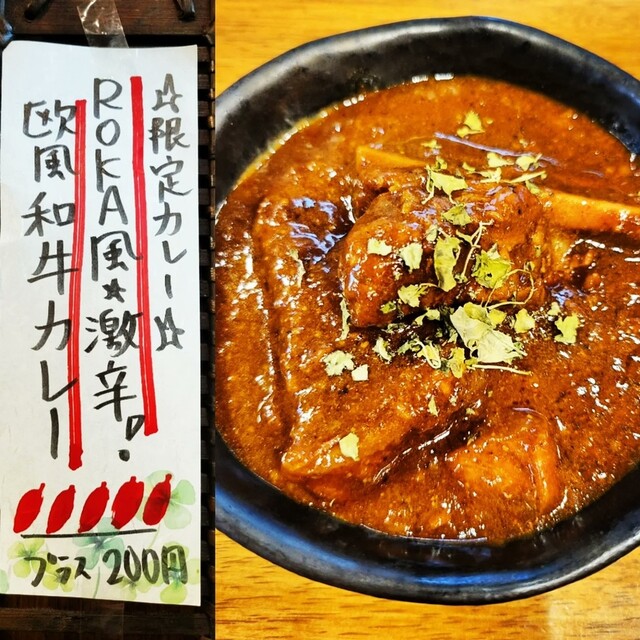 ☆限定カレー☆
ROKA風★激辛!
欧風和牛カレー
プラス 200円